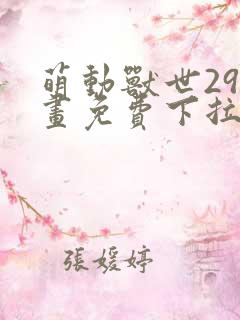 萌動獸世29
畫免費下拉
張媛婷